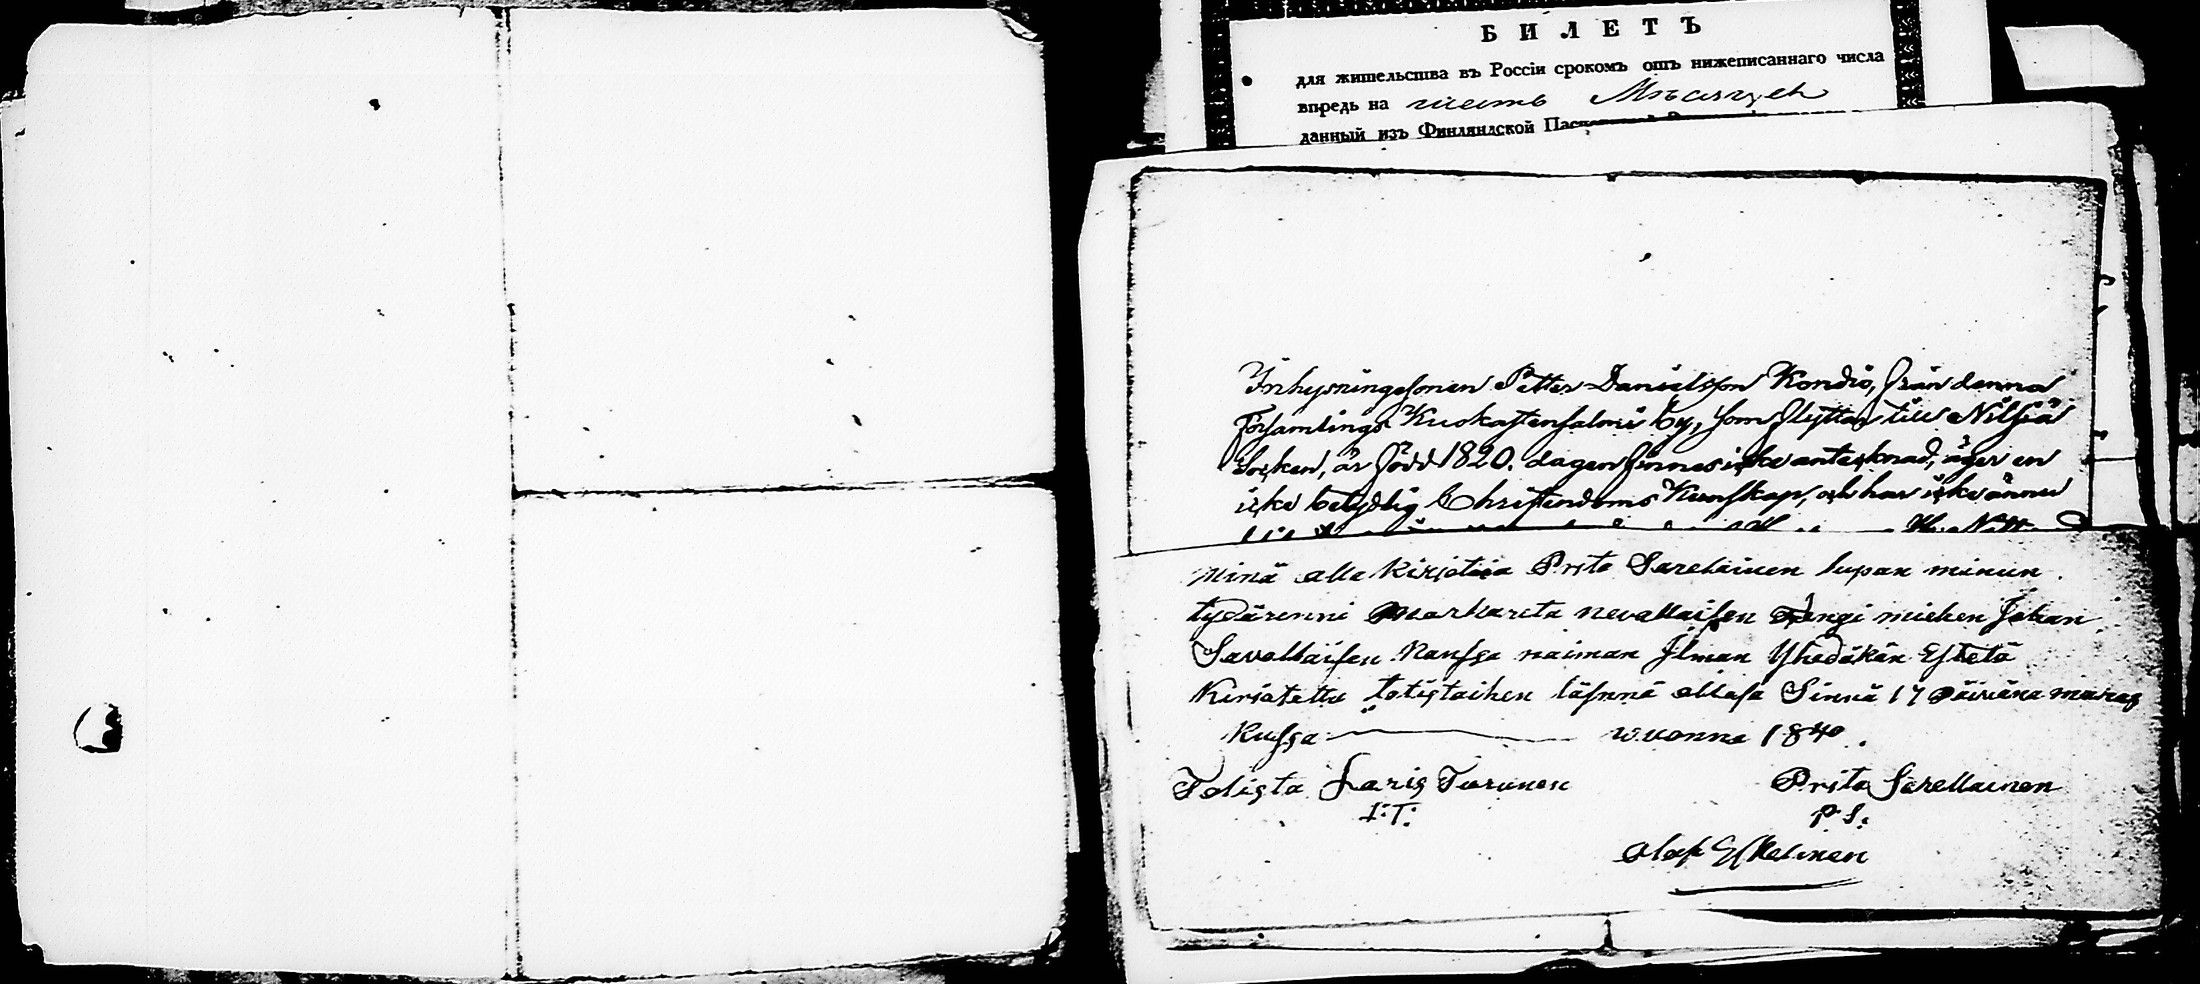 БИЛЕТЪ
для жительства въ Россіи срокомъ отъ нижеписаннаго числа
впредь на шесть Мѣсяцев
данный изъ Финляндской
Inhysningesonen Petter Danielsson Kondio, från denna
Församlings Kuokastensalmi by, som flyttar till Nilsiä
Socken, är född 1820. dagen finnes icke antecknad, äger en
icke betydlig Christendoms Kunskap, och har icke ännu
Minä alla kirjotija Prita Sarelainen lupan minun
tydärenni Markareta nevallaisen Rengi miehen Johan
Savallaisen kanssa naiman Ilman Yhedäkän Estetä
Kiriatettu totistaihen läsnnä ollasa Sinnä 17 Päivänä maras
Kussa wuonna 1840.
Todista Laris Turunen
Prita Sarellainen
L:T:
P. S:
Olof Eskelinen